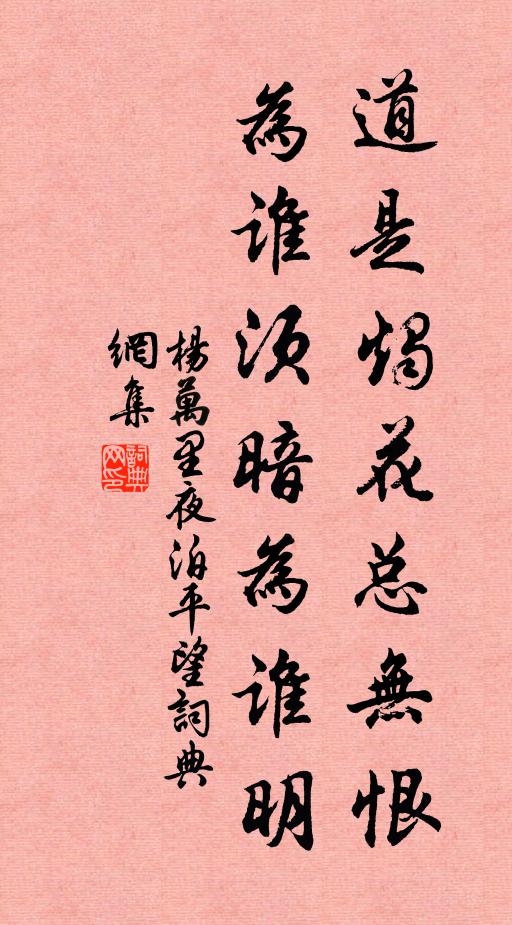 道是燭花总無恨
為誰須暗為誰明
楊萬里夜泊平望詞典
網集
詞典
网印